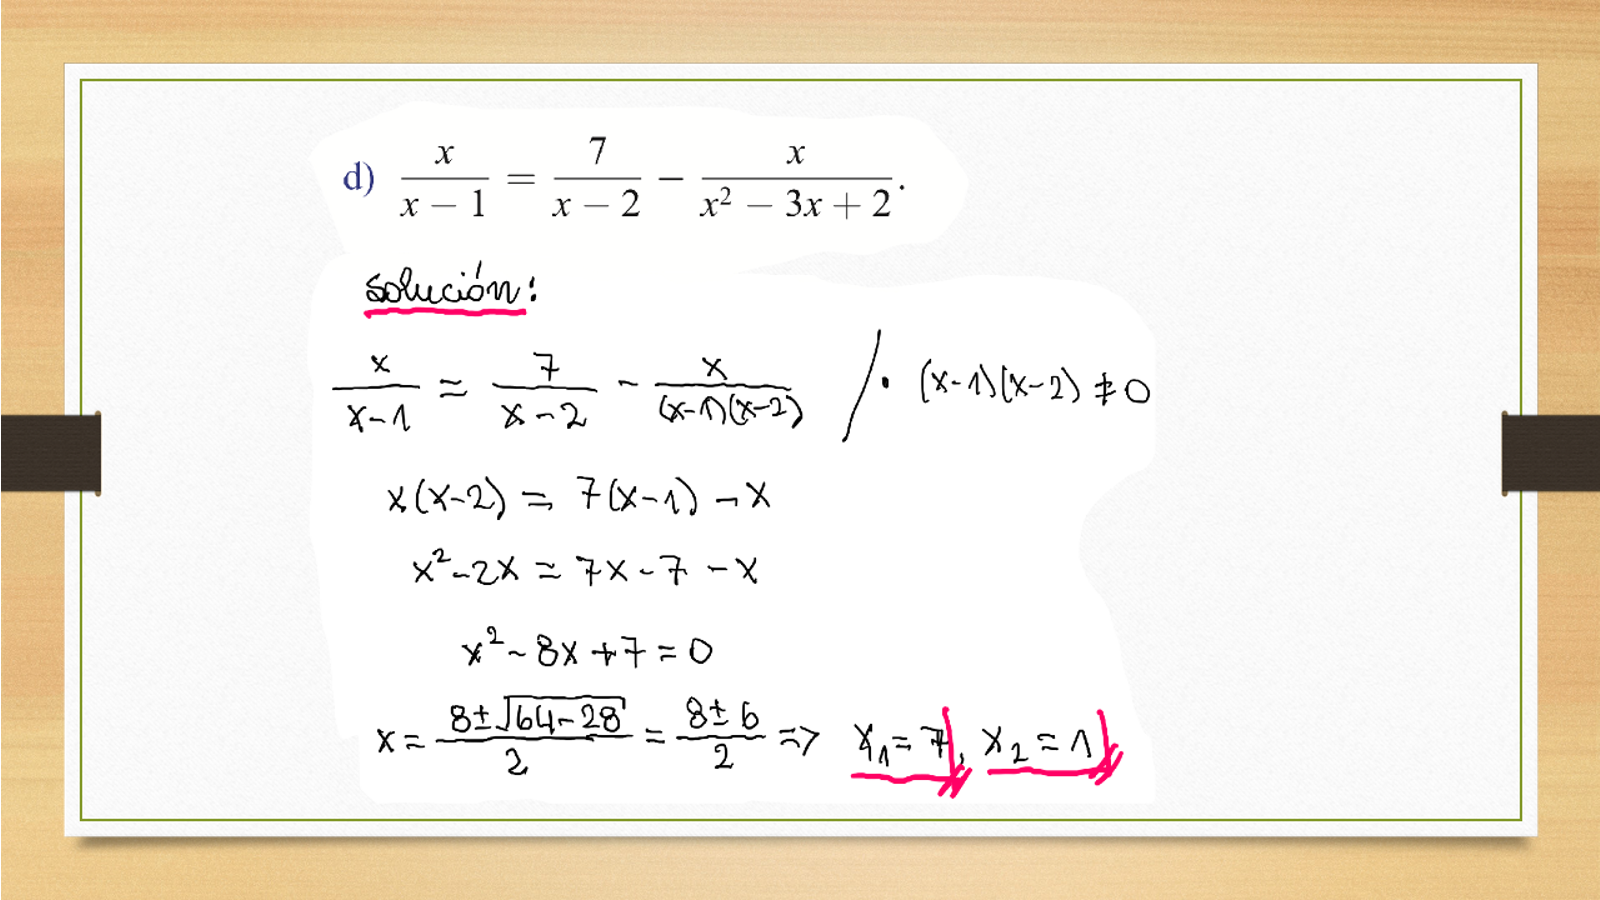 d) x/(x − 1) = 7/(x − 2) − x/(x² − 3x + 2).
solución:
x/(x-1) = 7/(x-2) - x/((x-1)(x-2)) / · (x-1)(x-2) ≠ 0
x(x-2) = 7(x-1) - x
x²-2x = 7x-7-x
x²-8x+7=0
x = (8±√(64-28))/2 = (8±6)/2 => x₁=7, x₂=1